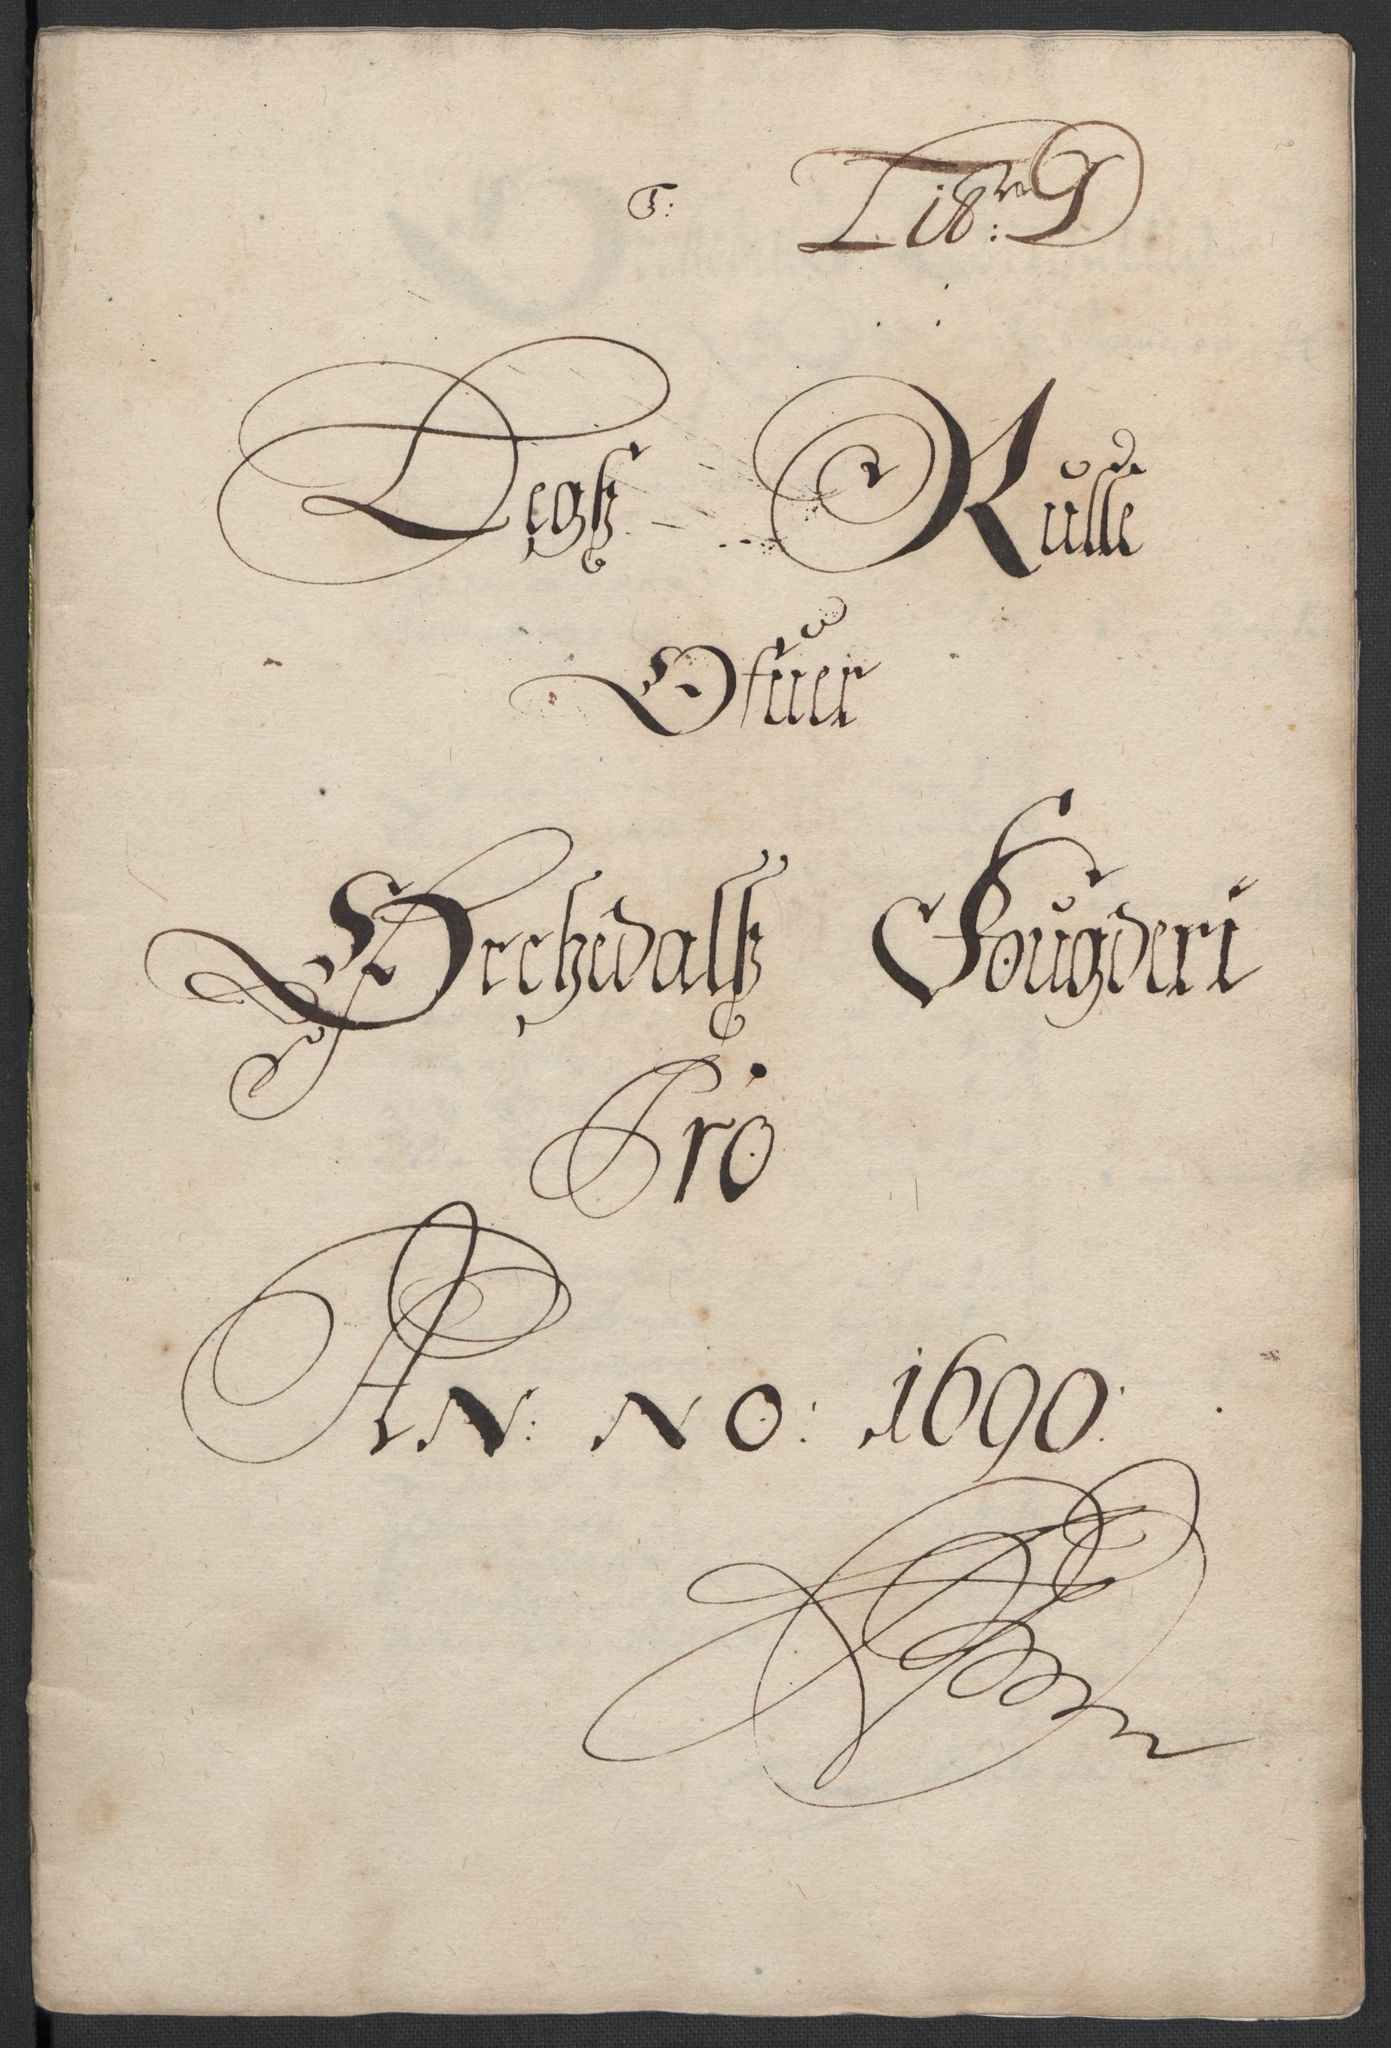 Lit:ra D
Legs Rulle
Ofuer
Orchedals Fougderi
Pro
AN: NO: 1690: